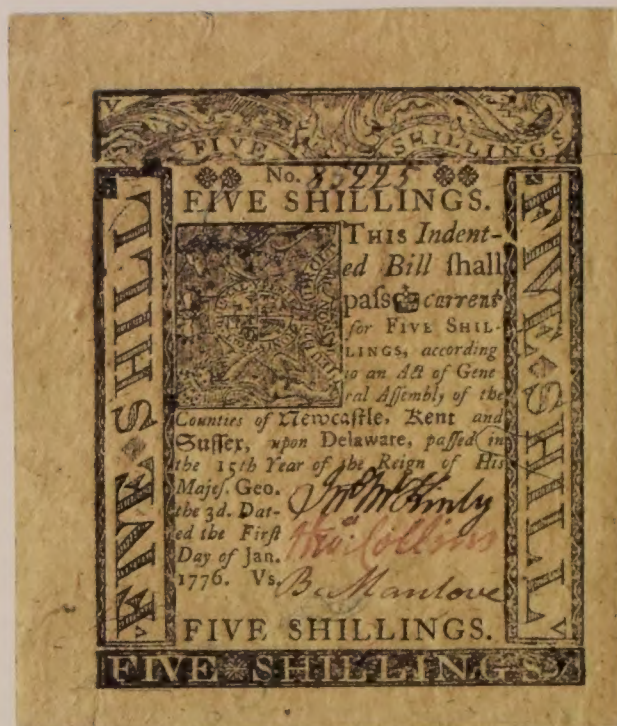 V
FIVE SHILLINGS
No. 85225
FIVE SHILLINGS.
THIS Indent-
ed Bill ſhall
paſs current
for FIVE SHIL-
LINGS, according
to an Act of Gene
ral Aſſembly of the
Counties of Newcaſtle, Kent and
Suſſex, upon Delaware, paſſed in
the 15th Year of the Reign of His
Majeſ. Geo.
the 3d. Dat-
ed the Firſt
Day of Jan.
1776. Vs.
Jno. McKinly
Thos. Collins
B. Manlove
FIVE SHILLINGS.
FIVE SHILLINGS
V FIVE SHILL
FIVE SHILL V